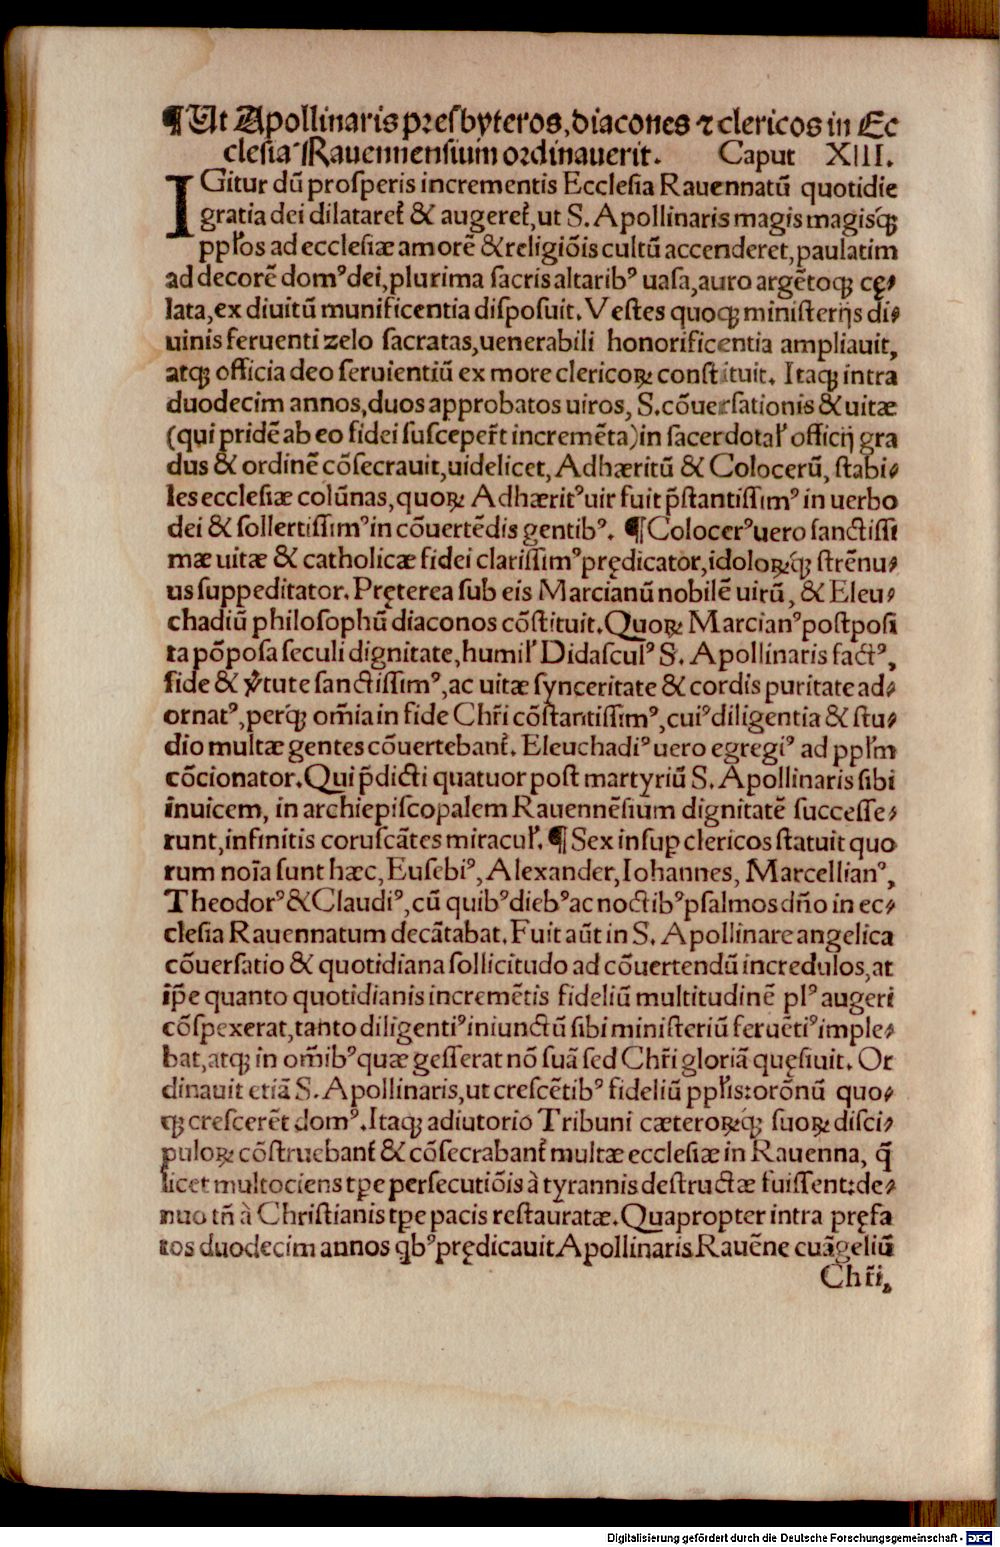 ¶Ut Apollinaris presbyteros, diacones ⁊ clericos in Ec
clesia Rauennensium ordinauerit. Caput XIII.
IGitur dū prosperis incrementis Ecclesia Rauennatū quotidie
gratia dei dilataret̃ & augeret̃, ut S. Apollinaris magis magisq̃ꝫ
pp̃los ad ecclesiæ amorē & religiōis cultū accenderet, paulatim
ad decorē domꝰ dei, plurima sacris altaribꝰ uasa, auro argētoqꝫ cę⸗
lata, ex diuitū munificentia disposuit. Vestes quoqꝫ ministerijs di⸗
uinis feruenti zelo sacratas, uenerabili honorificentia ampliauit,
atqꝫ officia deo seruientiū ex more clericoꝝ constituit. Itaqꝫ intra
duodecim annos, duos approbatos uiros, S. cōuersationis & uitæ
(qui pridē ab eo fidei suscepert̃ incremēta) in sacerdotal̃ officij gra
dus & ordinē cōsecrauit, uidelicet, Adhæritū & Colocerū, stabi⸗
les ecclesiæ colūnas, quoꝝ Adhæritꝰ uir fuit p̃stantissimꝰ in uerbo
dei & sollertissimꝰ in cōuertēdis gentibꝰ. ¶Colocerꝰ uero sanctissi
mæ uitæ & catholicæ fidei clarissimꝰ prędicator, idoloꝝq̃ꝫ strēnu⸗
us suppeditator. Pręterea sub eis Marcianū nobilē uirū, & Eleu⸗
chadiū philosophū diaconos cōstituit. Quoꝝ Marcianꝰ postposi
ta pōposa seculi dignitate, humil̃ Didasculꝰ S. Apollinaris factꝰ,
fide & v̓tute sanctissimꝰ, ac uitæ synceritate & cordis puritate ad⸗
ornatꝰ, perq̃ꝫ om̃ia in fide Chr̃i cōstantissimꝰ, cuiꝰ diligentia & stu⸗
dio multæ gentes cōuertebant̃. Eleuchadiꝰ uero egregiꝰ ad pp̃lm
cōcionator. Qui p̃dicti quatuor post martyriū S. Apollinaris sibi
inuicem, in archiepiscopalem Rauennēsium dignitatē successe⸗
runt, infinitis coruscātes miracul̃. ¶Sex insuꝑ clericos statuit quo
rum noīa sunt hæc, Eusebiꝰ, Alexander, Iohannes, Marcellianꝰ,
Theodorꝰ & Claudiꝰ, cū quibꝰ diebꝰ ac noctibꝰ psalmos dño in ec⸗
clesia Rauennatum decātabat. Fuit aūt in S. Apollinare angelica
cōuersatio & quotidiana sollicitudo ad cōuertendū incredulos, at
ip̄e quanto quotidianis incremētis fideliū multitudinē plꝰ augeri
cōspexerat, tanto diligentiꝰ iniunctū sibi ministeriū feruētiꝰ imple⸗
bat, atqꝫ in om̃ibꝰ quæ gesserat nō suā sed Chr̃i gloriā quęsiuit. Or
dinauit etiā S. Apollinaris, ut crescētibꝰ fideliū pp̃lis: orōnū quo⸗
qꝫ crescerēt domꝰ. Itaqꝫ adiutorio Tribuni cæteroꝝq̃ꝫ suoꝝ disci⸗
puloꝝ cōstruebant̃ & cōsecrabant̃ multæ ecclesiæ in Rauenna, q̄
licet multociens tꝑe persecutiōis à tyrannis destructæ fuissent: de⸗
nuo tñ à Christianis tꝑe pacis restauratæ. Quapropter intra pręfa
tos duodecim annos qbꝰ prędicauit Apollinaris Rauēne euāgeliū
Chr̃i,
Digitalisierung gefördert durch die Deutsche Forschungsgemeinschaft - DFG